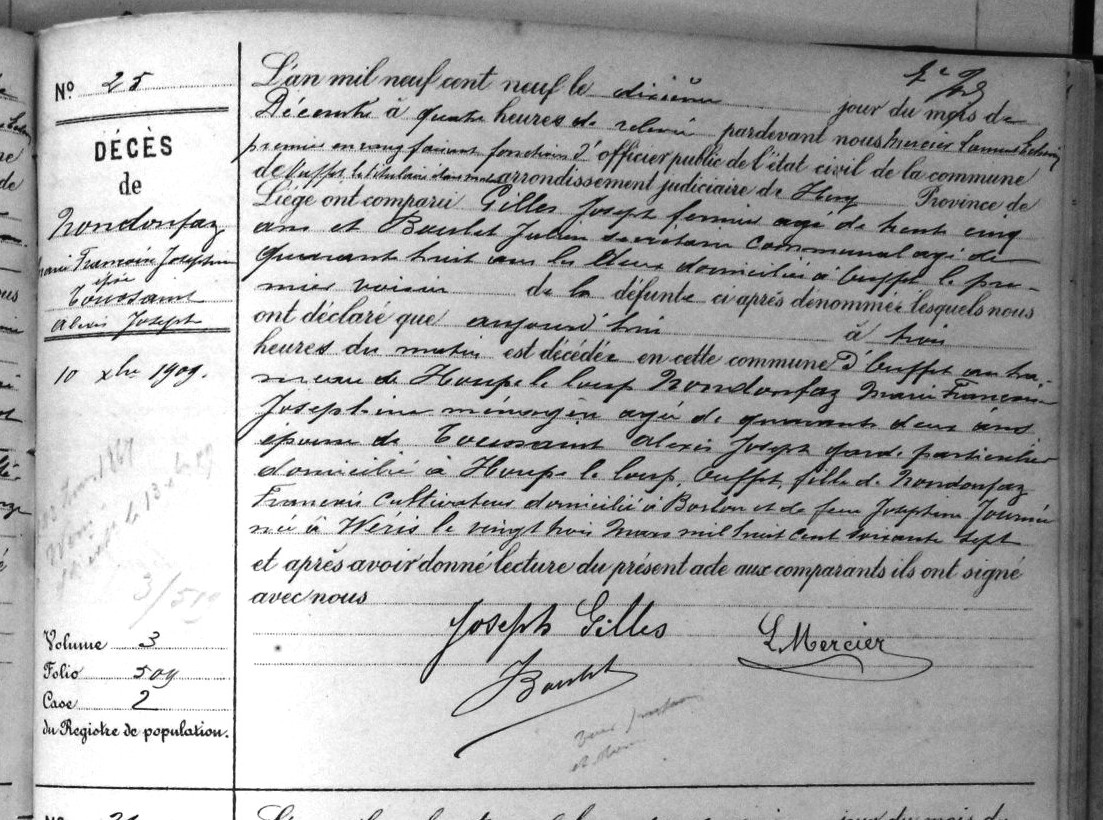 Nº 25
DÉCÈS
de
Rondonfaz
Marie Françoise Joséphine
épse
Toussaint
Alexis Joseph
10 xbre 1909.
3/510
Volume 3
Folio 509
Case 2
du Registre de population.
L'an mil neuf cent neuf le dixième jour du mois de
Décembre à quatre heures de relevée pardevant nous Mercier
premier échevin faisant fonctions d'officier public de l'état civil de la commune
d'Ouffet, arrondissement judiciaire de Huy Province de
Liége ont comparu Gilles Joseph fermier agé de trente cinq
ans et Boulet Julien secrétaire communal agé de
quarante huit ans les deux domiciliés à Ouffet le pre-
mier voisin de la défunte ci après dénommée lesquels nous
ont déclaré que aujourd'hui à trois
heures du matin est décédée en cette commune D'Ouffet au ha-
meau de Houpe le loup Rondonfaz Marie Françoise
Joséphine ménagère agée de quarante deux ans
épouse de Toussaint Alexis Joseph garde particulier
domicilié à Houpe le loup, Ouffet, fille de Rondonfaz
François cultivateur domicilié à Borlon et de feue Joséphine Journée
née à Wéris le vingt trois Mars mil huit cent soixante sept
et après avoir donné lecture du présent acte aux comparants ils ont signé
avec nous
Joseph Gilles L Mercier
Boulet
L'an jour du mois de